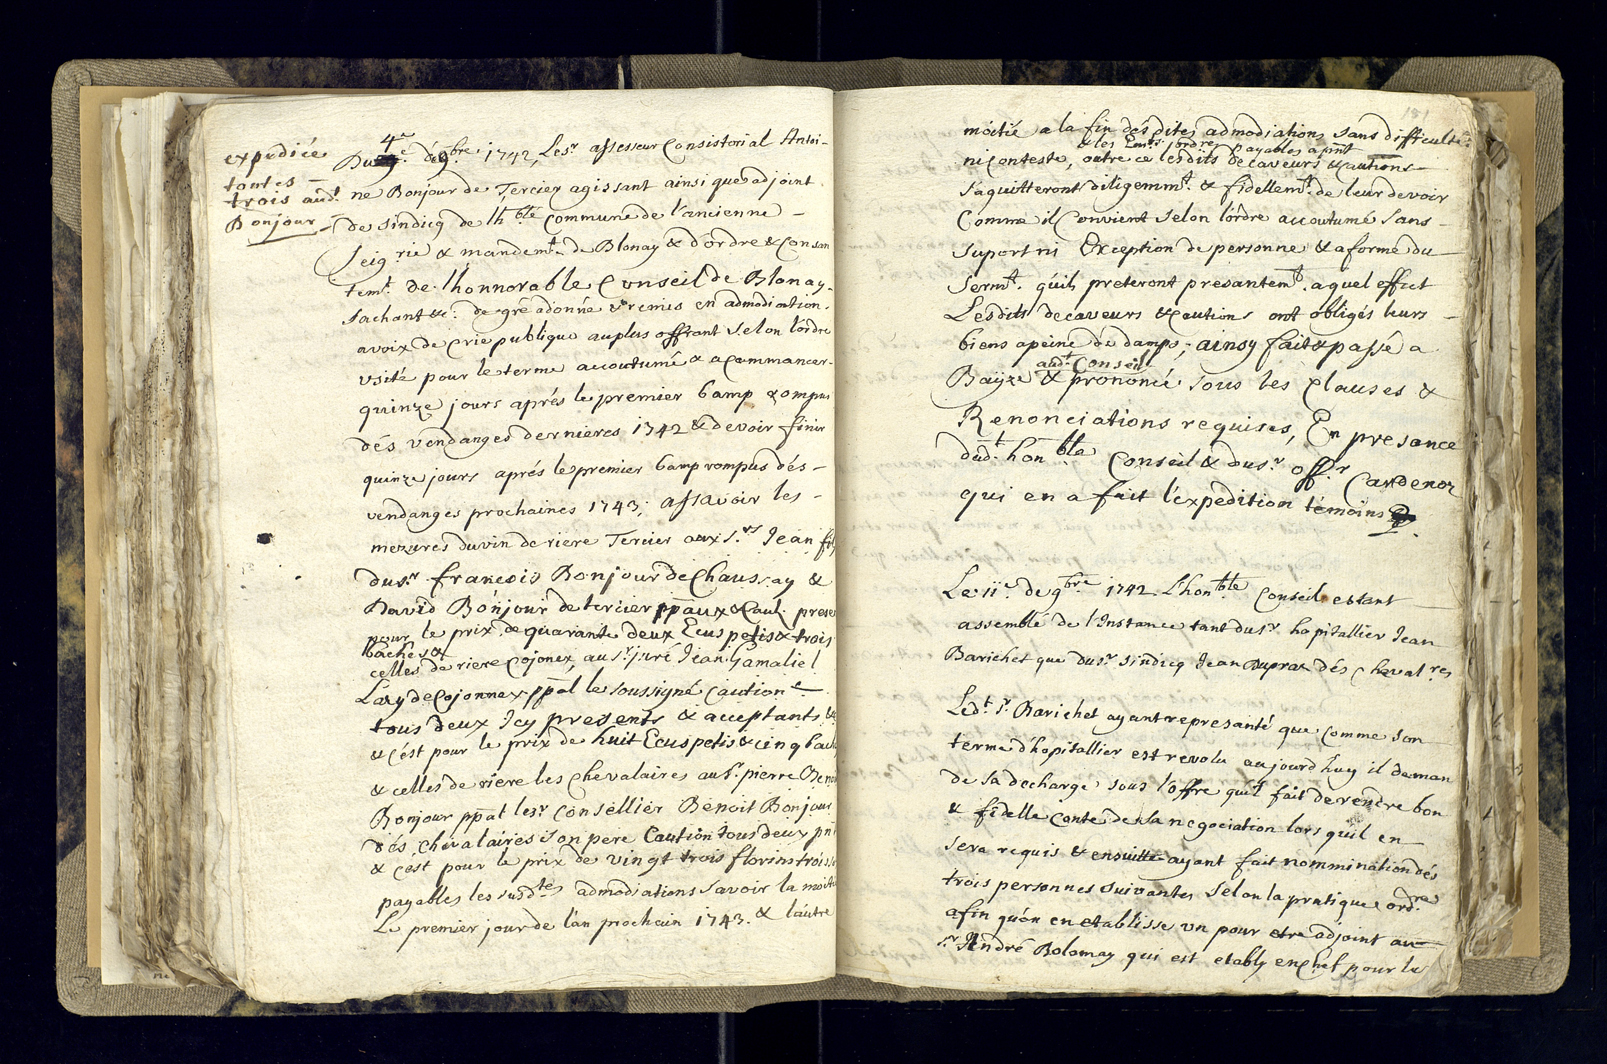 expediée
toutes
trois aud.t
Bonjour
Du 4e de 9bre 1742, Le sr assesseur Consistorial Antoi-
ne Bonjour de Tercier agissant ainsi que adjoint
de sindicq de lh.ble Commune de l'ancienne
Seig.rie & mandem.t de Blonay & d'ordre & Consan
tem.t de l'honnorable Conseil de Blonay-
sachant &c: de gré a donné & remis en admodiation.
a voix de Crie publique au plus offrant selon l'ordre
usité pour le terme accoutumé & a Commancer-
quinze jours aprés le premier bamp rompus
dés vendanges dernieres 1742 & devoir finir
quinze jours aprés le premier bamp rompus dés-
vendanges prochaines 1743; assavoir les-
mezures du vin de riere Tercier aux s.rs Jean fils
du sr. francois Bonjour de Chaussay &
David Bonjour de tercier ppaux & Caut. presen
pour le prix de quarante deux Ecus petis & trois
baches &
celles de riere Cojonex, au sr. juré Jean Gamaliel
Lary de Cojonnex ppal le soussigné Caution
tous deux Icy presents & acceptants, &
& c'ést pour le prix de huit Ecus petis & cinq bach
& celles de riere les Chevalaires au sr. pierre Beno
Bonjour ppal le sr. Consellier Benoit Bonjour
dés Chevalaires son pere Caution tous deux pnt
& c'ést pour le prix de vingt trois florins trois s
payables les susd.tes admodiations savoir la moitie
Le premier jour de l'an prochain 1743. & l'autre
181
moitié a la fin dés dites admodiations sans difficulté
& les Em.ts jordre payables a pnt
ni Conteste, outre ce les dits decaveurs & cautions
s'aquitteront diligemm.t & fidellem.t de leur devoir
Comme il Convient selon l'ordre accoutumé sans
suport ni Exception de personne & a forme du
serm.t qu'ils preteront presantem.t a quel effect
Les dits decaveurs & Cautions ont obligés leurs
biens a peine de damps; ainsy fait & passé a
aud.t Conseil
Bayze & prononcé sous les Clauses &
Renonciations requises, En presance
dud.t hon.ble Conseil & du sr. off.r Cardenoz
qui en a fait l'expedition témoins
Le 11e de 9bre 1742 L'hon.ble Conseil estant
assemblé de l'Instance tant du sr. hopitallier Jean
Barichet que du sr. sindicq Jean Dupraz dés Cheval.res
Led.t Sr. Barichet ayant representé que comme son
terme d'hopitallier est revolu aujourd'huy il deman
de sa decharge sous l'offre qu'il fait de rendre bon
& fidelle Conte de sa negociation lors qu'il en
sera requis & ensuitte ayant fait nommination dés
trois personnes suivantes selon la pratique ord.re
afin qu'on en etablisse un pour etre adjoint au
sr. André Bolomay qui est etably en Chef pour la